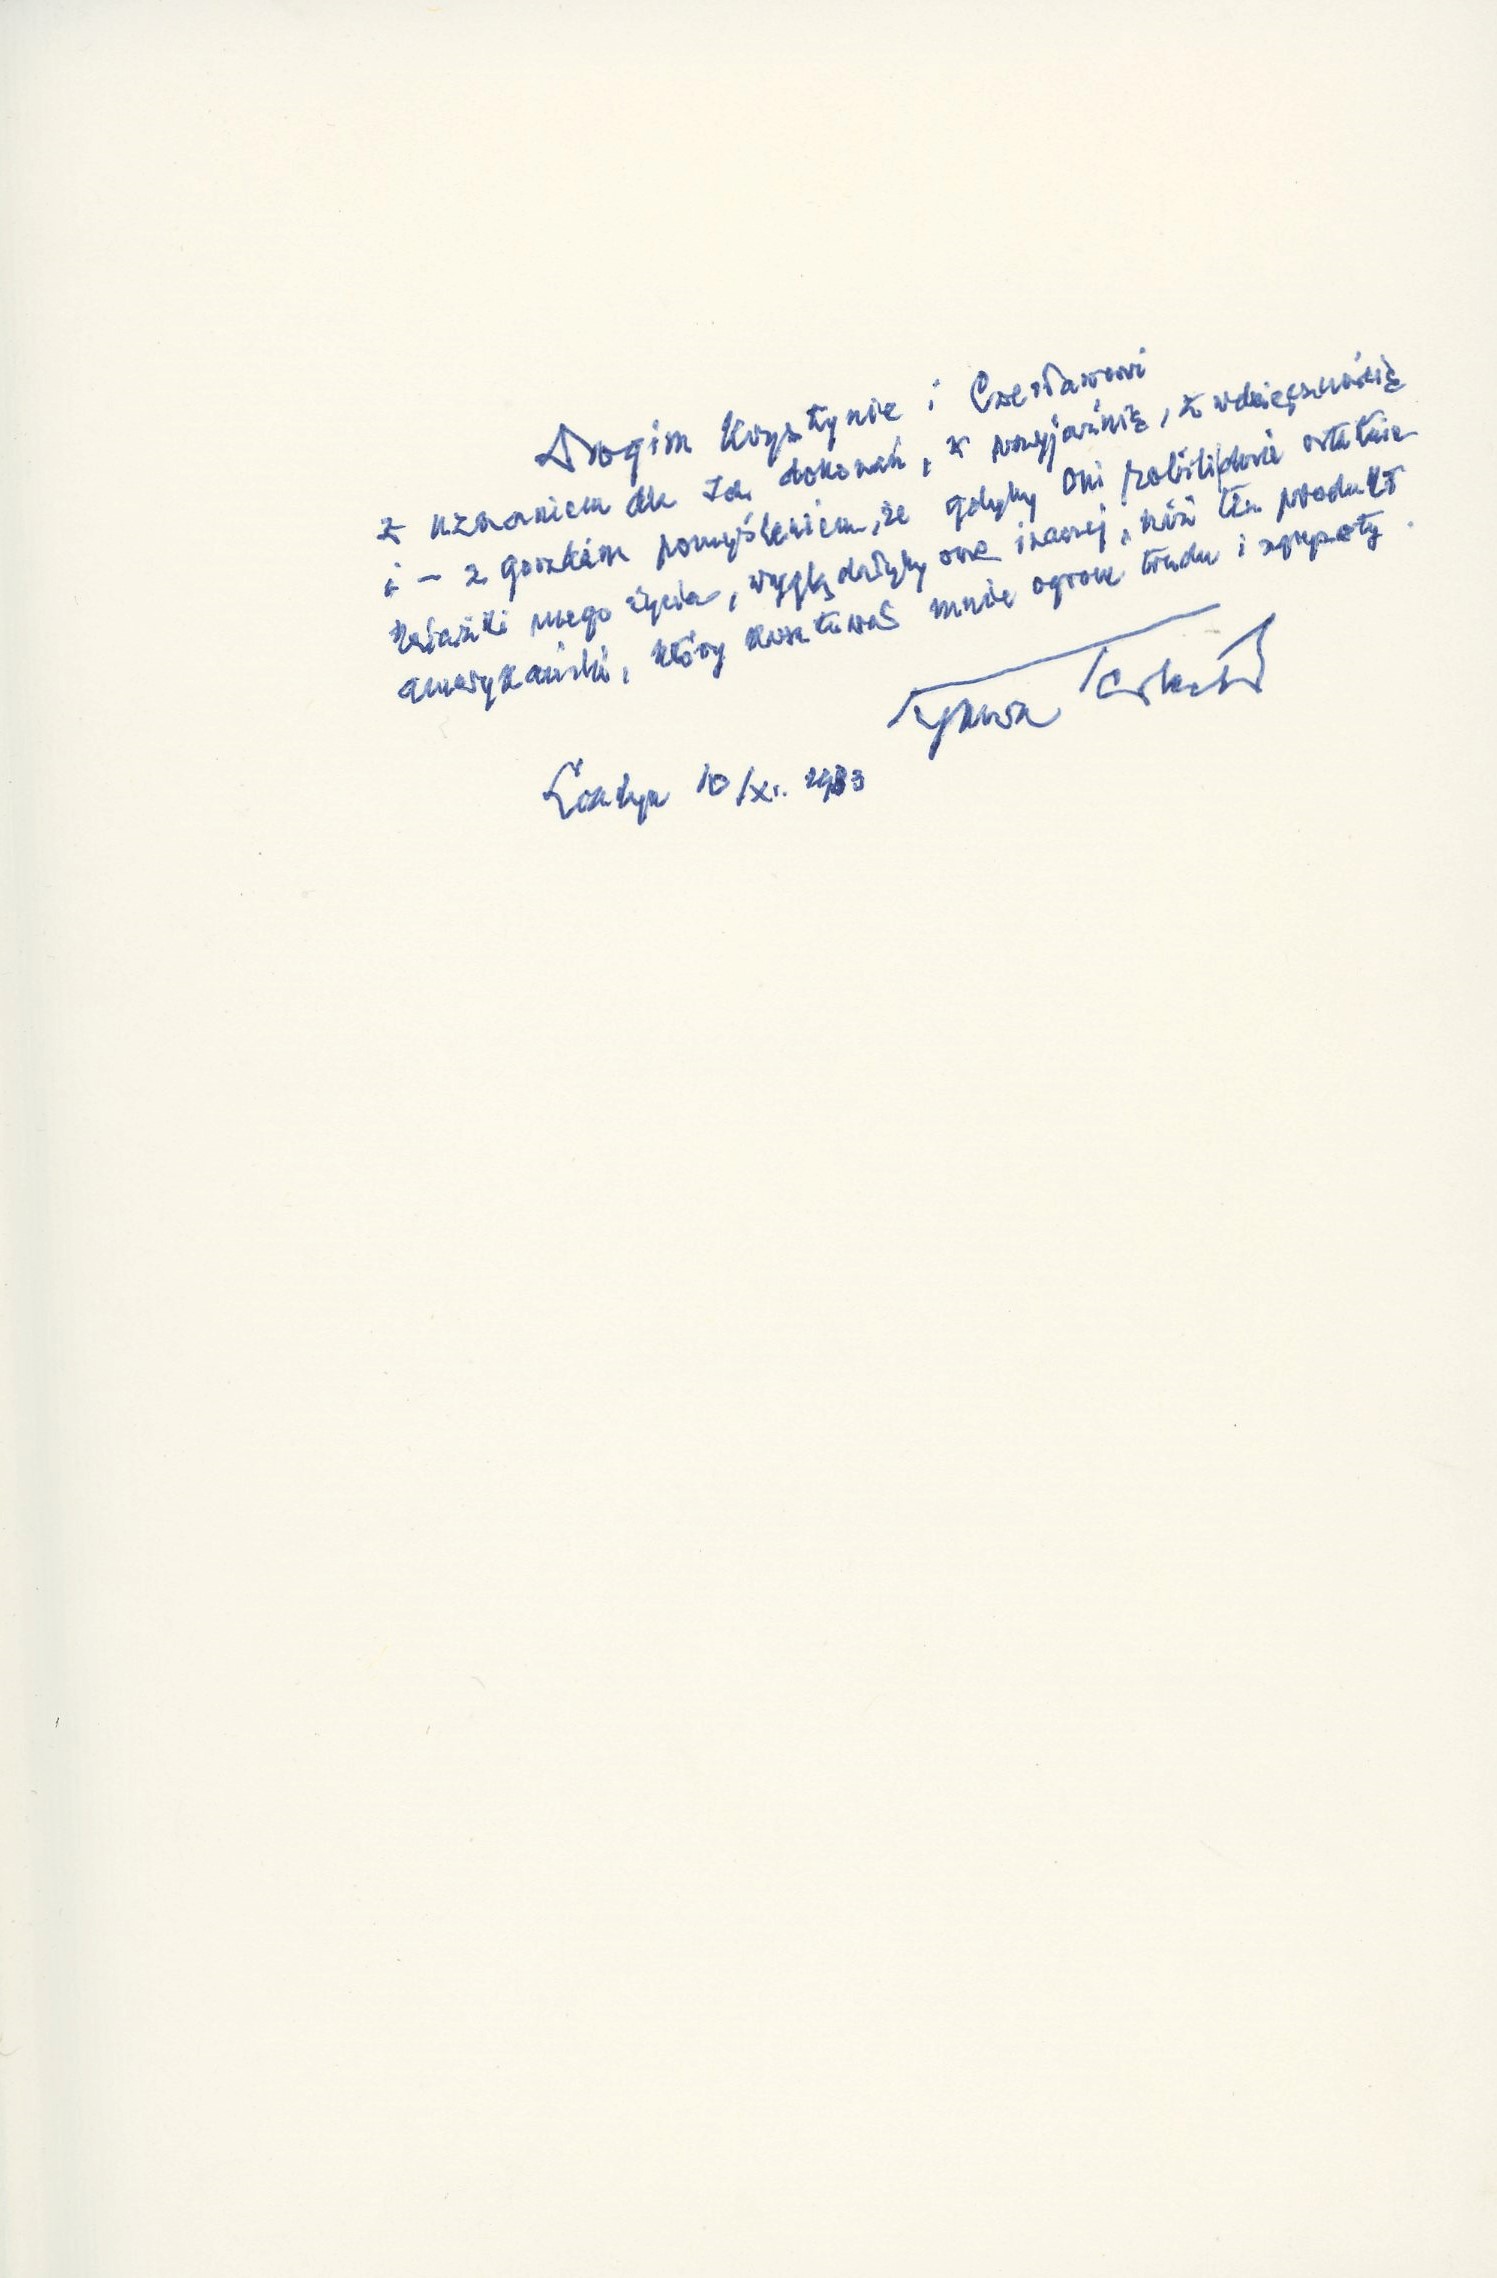 Drogim Krystynie i Czesławowi
z uznaniem dla Ich dokonań, z przyjaźnią, z wdzięcznością
i – z gorzkim pomyśleniem, że gdyby Oni robili dwie ostatnie
książki mego życia, wyglądałyby one inaczej, niż ten produkt
amerykański, który kosztował mnie ogrom trudu i zgryzoty.
Tymon Terlecki
Londyn 10/XI. 1983